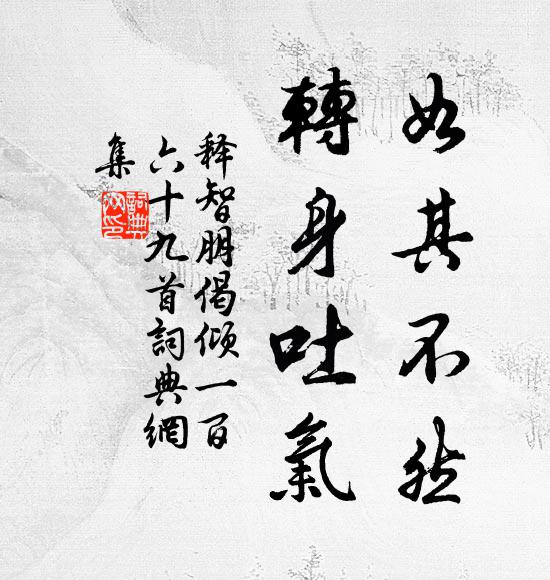 如其不然
轉身吐氣
释智朋偈倾一百
六十九首詞典網
集